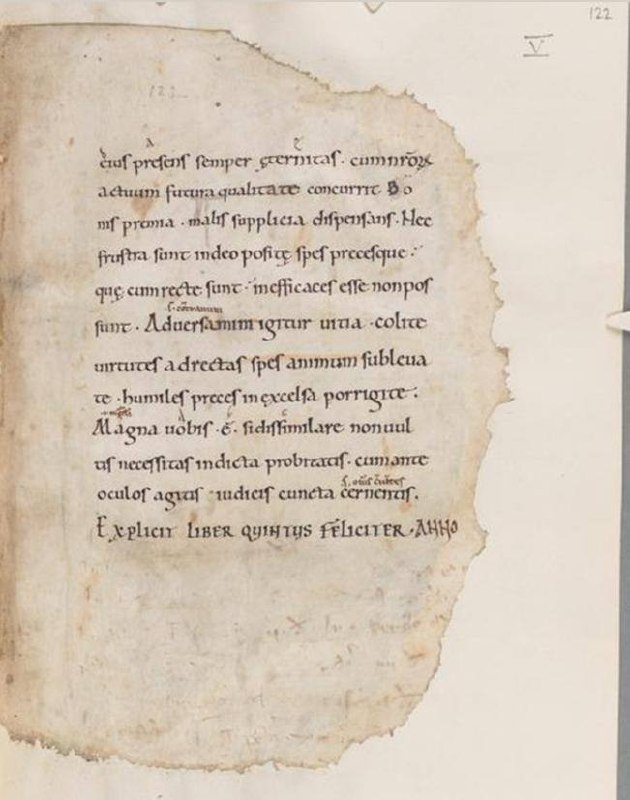 122
V
122
eius presens semper ęternitas · cum nr̄oꝝ
actuum futura qualitate concurrit Bo
nis premia · malis supplicia dispensans · Nec
frustra sunt in deo positę spes precesque ·
quę cum recte sunt · inefficaces esse non pos
s. contrarium
sunt · Adversamini igitur uitia · colite
uirtutes ad rectas spes animum subleua
te · humiles preces in excelsa porrigite ·
Magna uobis · ē · si dissimilare non uul
tis necessitas indicta probitatis · cum ante
oculos agitis iudicis cuncta cernentis.
Explicit LIBER QUINTUS FELICITER · ANNO